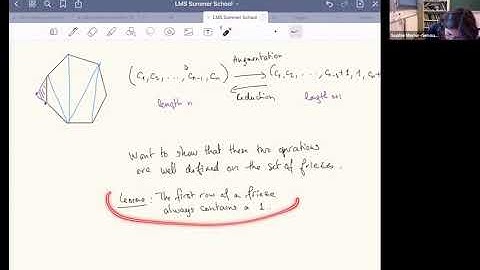 LMS Summer School
LMS Summer School
Augmentation
(C₁, C₂, ..., Cₙ₋₁, Cₙ) (C₁, C₂, ...
length n
Reduction
length n+1
Want to show that these two operations
are well defined on the set of friezes.
Lemma: The first row of a frieze
always contains a 1.